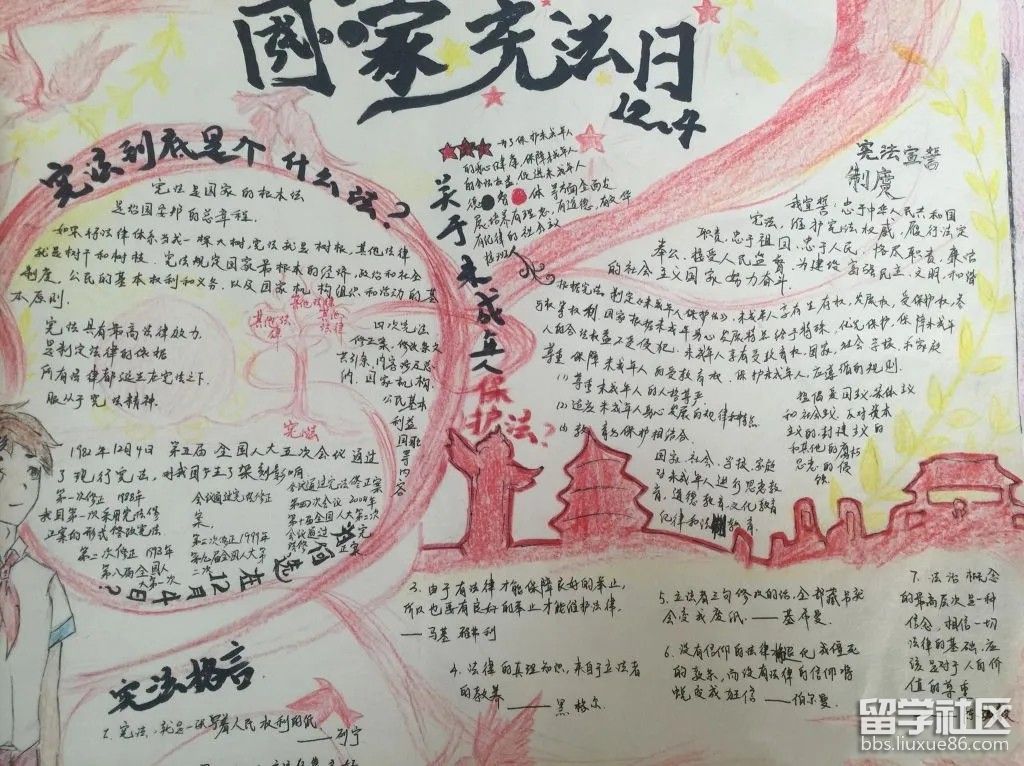 国家宪法日
12.4
宪法到底是个什么法?
宪法是国家的根本法
是治国安邦的总章程.
如果将法律体系当成一棵大树,宪法就是树根,其他法律
就是树干和树枝。宪法规定国家最根本的经济,政治和社会
制度,公民的基本权利和义务,以及国家机构组织和活动的基
本原则.
宪法具有最高法律效力
是制定法律的依据
所有法律都
服从于宪法精神.
其他法律
其他法律
其他法律
宪法
四次宪法
修正案,修改条文
内容涉及
国家机构
公民基本
利益
等内容
1982年12月4日 第五届全国人大五次会议通过
了现行宪法,对我国产生了深刻影响
第一次修正 1988年
我国第一次采用宪法修
正案的形式修改宪法
第二次修正 1993年
第八届全国人
大第一次
会议通过宪法修正
案.
第三次修正1999年
第九届全国人大第
二次
会议通过宪法修正案
第四次会议 2004年
第十届全国人大第二次
会议通过宪
法修正案
为何选在12月4日?
关于未成年人保护法?
为了保护未成年人
的身心健康,保障未成年人
的合法权益,促进未成年人
德 智 体 等方面全面发
展,培养有理想,有道德,有文化
有纪律的社会主义
接班人
宪法宣誓
制度
我宣誓:忠于中华人民共和国
宪法,维护宪法权威,履行法定
职责,忠于祖国,忠于人民,恪尽职责,廉洁
奉公,接受人民监督,为建设富强民主,文明,和谐
的社会主义国家努力奋斗.
根据宪法,制定《未成年人保护法》,未成年人享有生存权,发展权,受保护权,参
与权等权利,国家根据未成年人身心发展特点给予特殊,优先保护,保障未成年
人的合法权益不受侵犯.未成年人享有受教育权,国家,社会,学校,和家庭
尊重 保障未成年人的受教育权.保护未成年人,应遵循的规则.
(1)尊重未成年人的人格尊严
(2)适应未成年人身心发展的规律和特点
(3)教育与保护相结合.
国家,社会,学校,家庭
对未成年人进行思想教
育,道德教育,文化教育
纪律和法制教育.
提倡爱国主义,集体主义
和社会主义,反对资本
主义的,封建主义的
和其他的腐朽
思想的侵
蚀.
宪法格言
2.宪法,就是一张写着人民权利的纸
——列宁
3.由于有法律才能保障良好的举止,
所以也要有良好的举止才能维护法律.
——马基雅弗利
4.法律的真理知识,来自于立法者
的教养——黑格尔
5.立法者三句修改的话,全部藏书就
会变成废纸.——基希曼.
6.没有信仰的法律将退化成僵死
的教条,而没有法律的信仰将
蜕变成狂信——伯尔曼.
7.法治概念
的最高层次是一种
信念,相信一切
法律的基础,应
该是对于人的价
值的尊重
留学社区
bbs.liuxue86.com